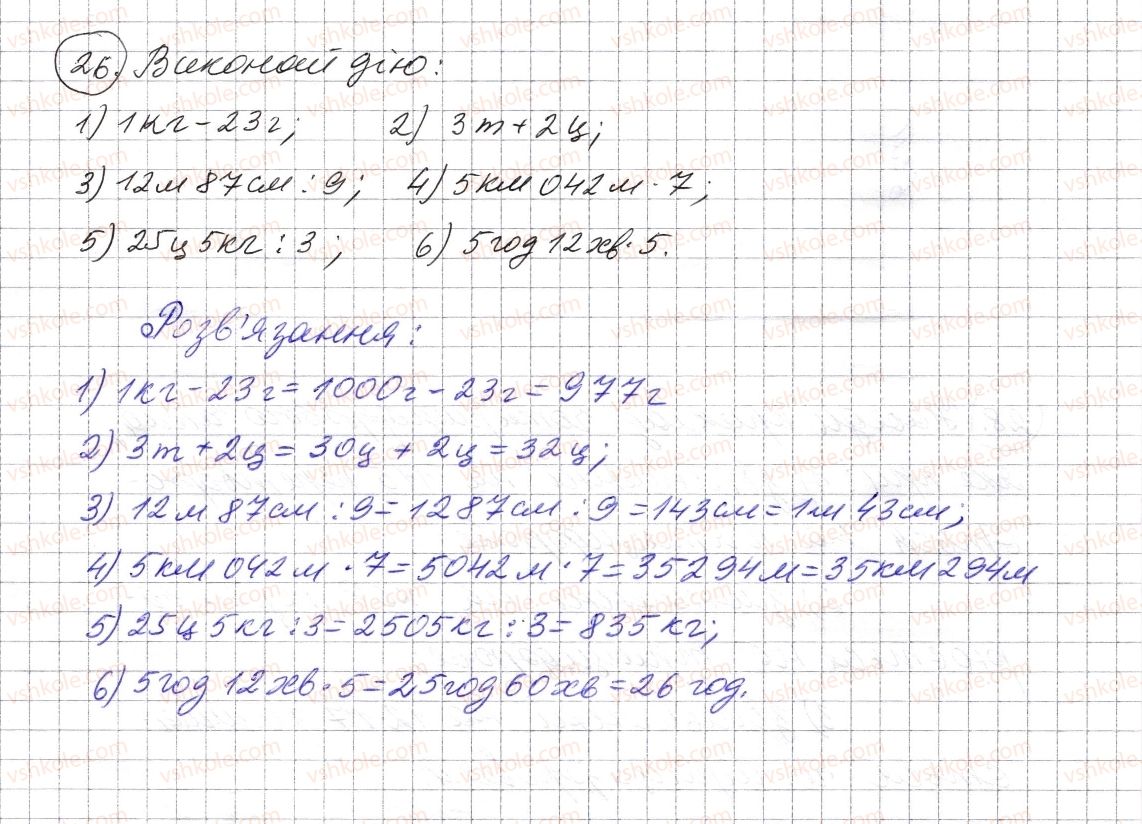 26. Виконай дію:
1) 1кг - 23г; 2) 3т + 2ц;
3) 12м 87см : 9; 4) 5км 042м · 7;
5) 25ц 5кг : 3; 6) 5год 12хв · 5.
Розв'язання:
1) 1кг - 23г = 1000г - 23г = 977г
2) 3т + 2ц = 30ц + 2ц = 32ц;
3) 12м 87см : 9 = 1287см : 9 = 143см = 1м 43см;
4) 5км 042м · 7 = 5042м · 7 = 35294м = 35км 294м
5) 25ц 5кг : 3 = 2505кг : 3 = 835кг;
6) 5год 12хв · 5 = 25год 60хв = 26 год.
vshkole.com